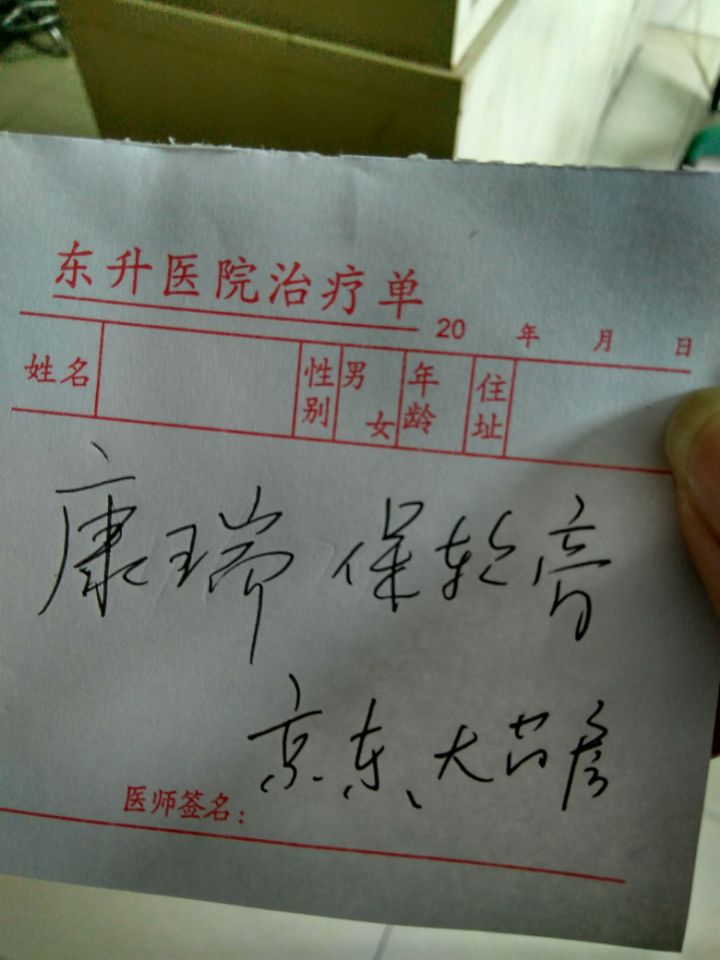 东升医院治疗单
20 年 月 日
姓名 性别 男 女 年龄 住址
康瑞保软膏
京东大药房
医师签名：